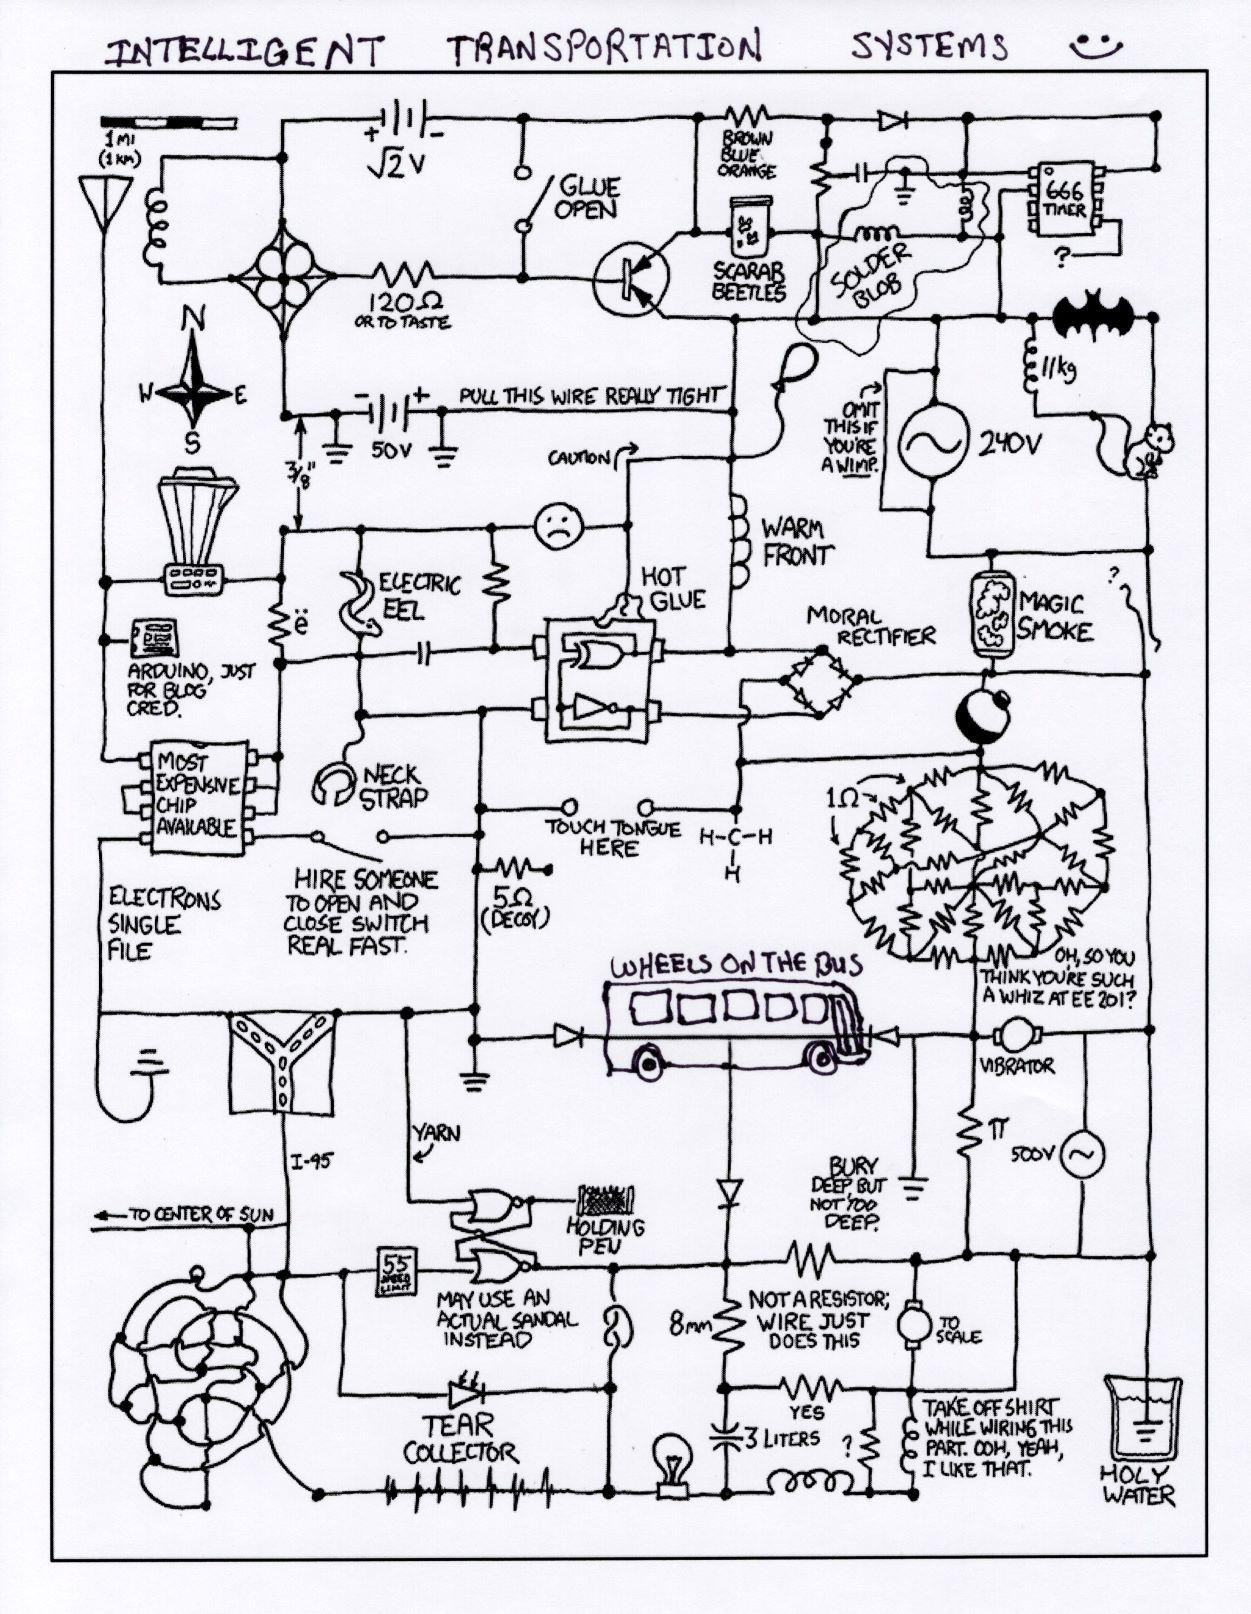 INTELLIGENT TRANSPORTATION SYSTEMS
1 MI
(1 KM)
+ -
√2 V
GLUE
OPEN
BROWN
BLUE
ORANGE
666
TIMER
?
SCARAB
BEETLES
SOLDER
BLOB
120Ω
OR TO TASTE
N
W E
S
11kg
- +
50V
PULL THIS WIRE REALLY TIGHT
OMIT
THIS IF
YOU'RE
A WIMP.
240V
3/8"
CAUTION
WARM
FRONT
ELECTRIC
EEL
HOT
GLUE
ë
MORAL
RECTIFIER
MAGIC
SMOKE
?
ARDUINO, JUST
FOR BLOG
CRED.
MOST
EXPENSIVE
CHIP
AVAILABLE
NECK
STRAP
TOUCH TONGUE
HERE
H-C-H
H
1Ω
HIRE SOMEONE
TO OPEN AND
CLOSE SWITCH
REAL FAST.
5Ω
(DECOY)
ELECTRONS
SINGLE
FILE
WHEELS ON THE BUS
OH, SO YOU
THINK YOU'RE SUCH
A WHIZ AT EE 201?
VIBRATOR
YARN
I-95
π
500V
BURY
DEEP, BUT
NOT TOO
DEEP.
TO CENTER OF SUN
HOLDING
PEN
55
SPEED
LIMIT
MAY USE AN
ACTUAL SANDAL
INSTEAD
8mm
NOT A RESISTOR;
WIRE JUST
DOES THIS
TO
SCALE
YES
TEAR
COLLECTOR
3 LITERS
?
TAKE OFF SHIRT
WHILE WIRING THIS
PART. OOH, YEAH,
I LIKE THAT.
HOLY
WATER